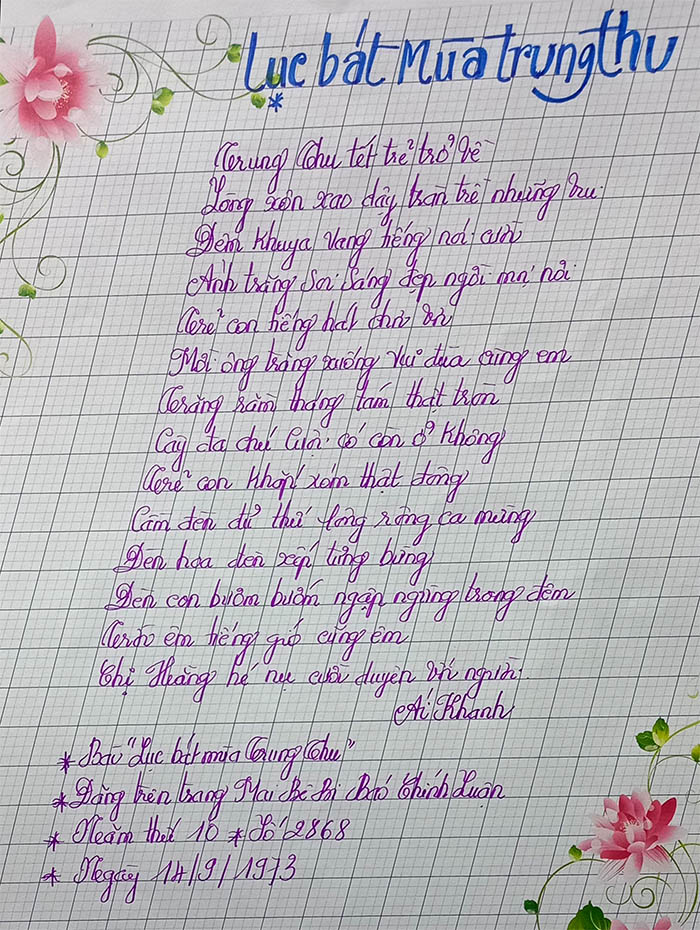 Lục bát mùa trung thu
*
Trung Thu tết trẻ trở về
Lòng xôn xao dậy tràn trề những vui
Đêm khuya vang tiếng nói cười
Ánh trăng soi sáng đẹp ngời mọi nơi
Trẻ con tiếng hát chơi vơi
Mời ông trăng xuống vui đùa cùng em
Trăng rằm tháng tám thật tròn
Cây đa chú Cuội có còn ở không
Trẻ con khắp xóm thật đông
Cầm đèn đủ thứ lòng ròng ca mừng
Đèn hoa đèn xếp tưng bừng
Đèn con bươm bướm ngập ngừng trong đêm
Trời êm tiếng gió cũng êm
Chị Hằng hé nụ cười duyên với người.
Ái Khanh
* Bài "Lục bát mùa Trung Thu"
* Đăng trên trang Mai Bê Bi Báo Chính Luận
* Năm thứ 10 * Số 2868
* Ngày 14/9/1973